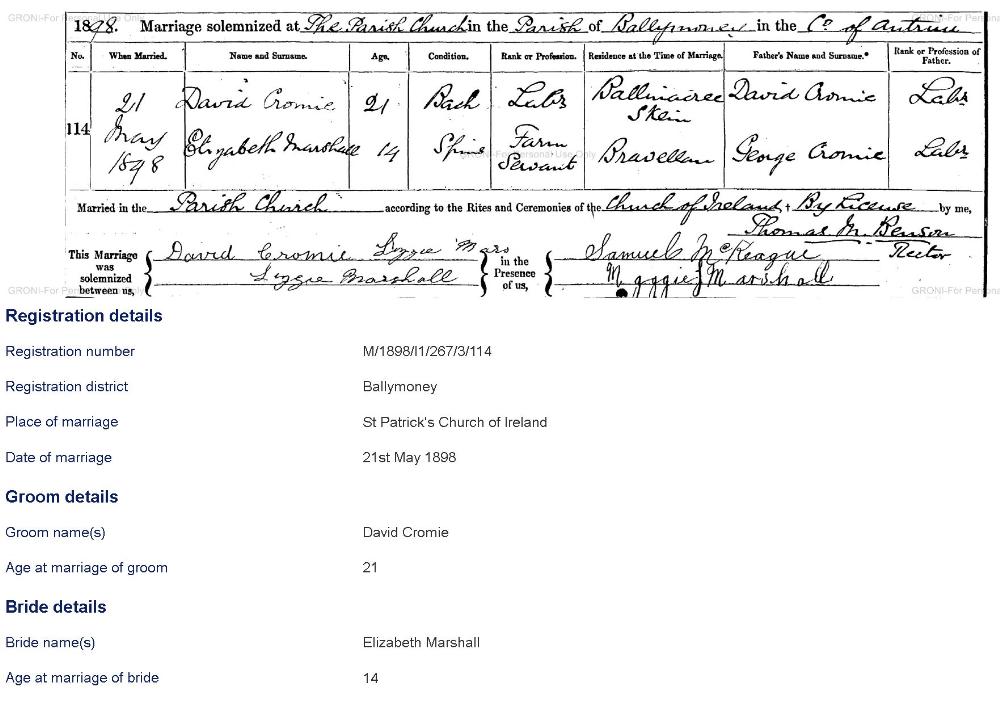 1898. Marriage solemnized at The Parish Church in the Parish of Ballymoney in the Co of Antrim
No. When Married. Name and Surname. Age. Condition. Rank or Profession. Residence at the Time of Marriage. Father's Name and Surname.* Rank or Profession of Father.
114 21 May 1898 David Cromie 21 Bach Labr Ballinacree Skein David Cromie Labr
Elizabeth Marshall 14 Spins Farm Servant Bravellan George Cromie Labr
Married in the Parish Church according to the Rites and Ceremonies of the Church of Ireland + By License by me,
Thomas M. Benson
Rector
This Marriage was solemnized between us, David Cromie Lizzie Mars in the Presence of us, Samuel McKeague
Lizzie Marshall Maggie J Marshall
GRONI-For Personal Use Only
Registration details
Registration number M/1898/I1/267/3/114
Registration district Ballymoney
Place of marriage St Patrick's Church of Ireland
Date of marriage 21st May 1898
Groom details
Groom name(s) David Cromie
Age at marriage of groom 21
Bride details
Bride name(s) Elizabeth Marshall
Age at marriage of bride 14